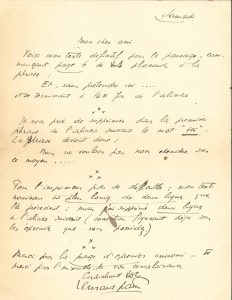 Samedi
Mon cher ami
Voici mon texte définitif pour le passage, com-
mençant page 6 de vos placards à la
phrase :
Et, sans prétendre ici ....
et se terminant à la fin de l'alinéa
Je vous prie de supprimer dans la première
phrase de l'alinéa suivant le mot "ici".
La phrase devient donc :
Nous ne voulons pas nous étendre sur
ce moyen .....
Pour l'imprimeur pas de difficulté : mon texte
nouveau est plus long de deux lignes que
le précédent ; mais j'ai supprimé deux lignes
à l'alinéa suivant (correction figurant déjà sur
les épreuves que vous
Merci pour la page d'épreuves
merci pour l'ensemble de vos
Cordialement